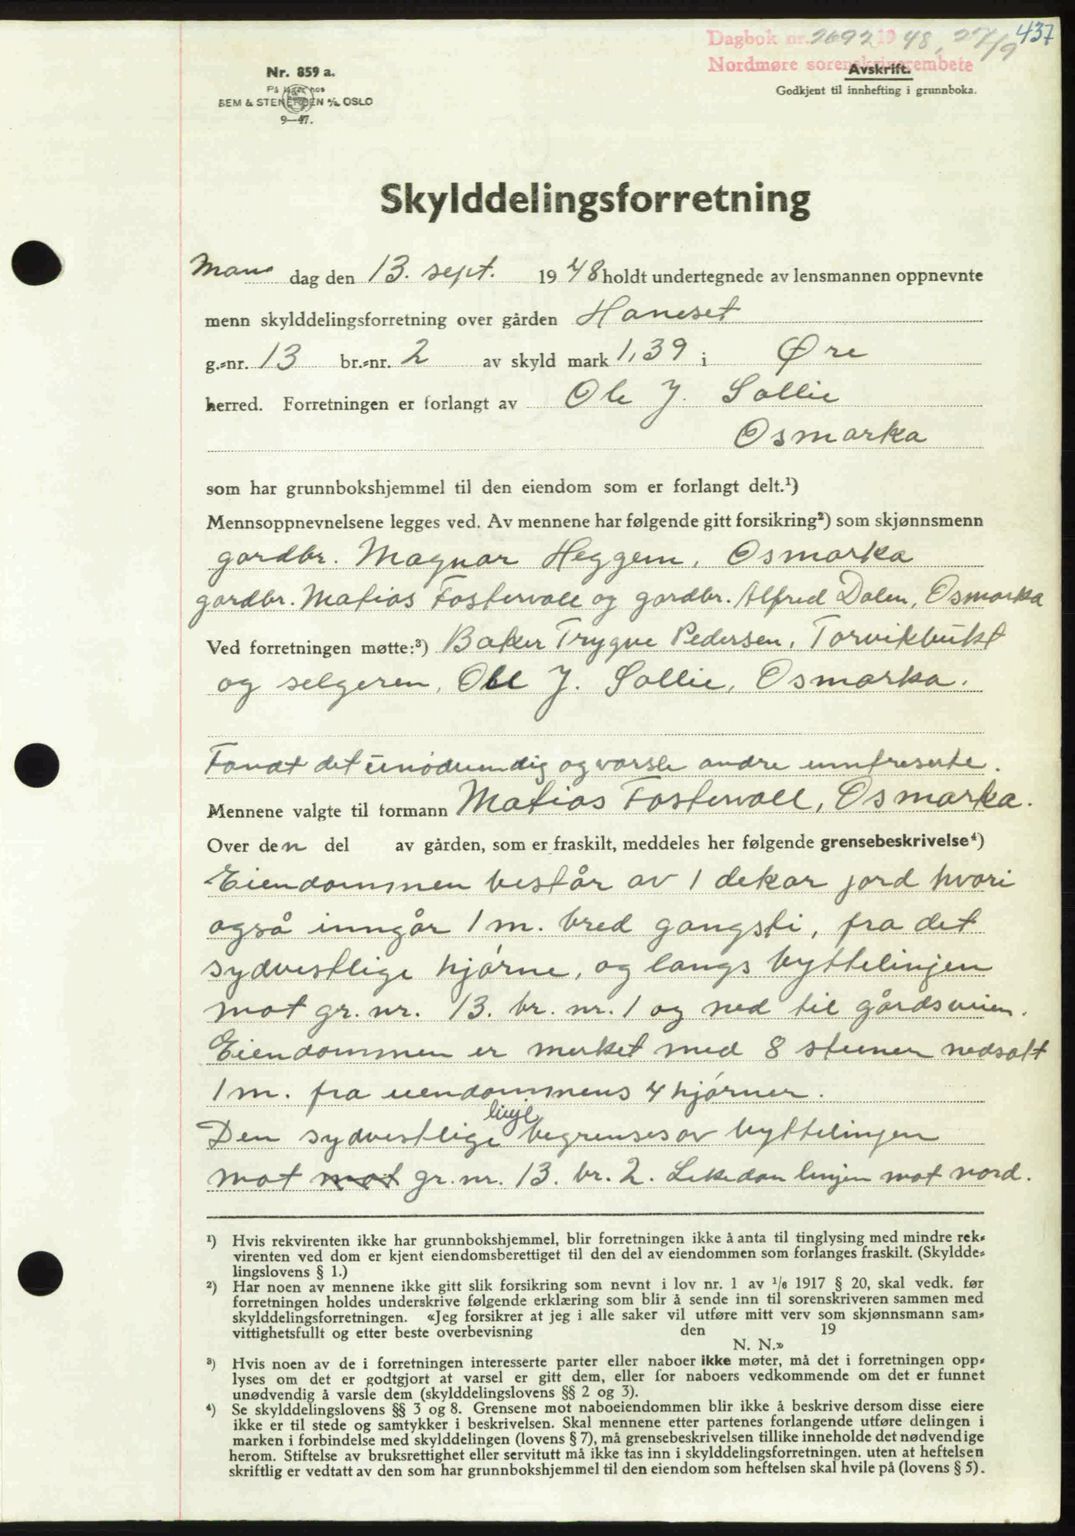 437
Dagbok nr. 2692 1948, 27/9
Nordmøre sorenskriverembete
Avskrift.
Godkjent til innhefting i grunnboka.
Nr. 859 a.
På lager hos
SEM & STENERSEN A/S OSLO
9—47.
Skylddelingsforretning
Man dag den 13. sept. 1948 holdt undertegnede av lensmannen oppnevnte
menn skylddelingsforretning over gården Haneset
g.-nr. 13 br.-nr. 2 av skyld mark 1,39 i Øre
herred. Forretningen er forlangt av Ole J. Sollie
Osmarka
som har grunnbokshjemmel til den eiendom som er forlangt delt.¹)
Mennsoppnevnelsene legges ved. Av mennene har følgende gitt forsikring²) som skjønnsmenn
gardbr. Magnar Heggem, Osmarka
gardbr. Matias Fostervoll og gardbr. Alfred Dalen, Osmarka
Ved forretningen møtte:³) Baker Trygve Pedersen, Torvikbukt
og selgeren, Ole J. Sollie, Osmarka.
Fandt det unødvendig og varsle andre
Mennene valgte til formann Matias Fostervoll, Osmarka.
Over den del av gården, som er fraskilt, meddeles her følgende grensebeskrivelse⁴)
Eiendommen består av 1 dekar jord hvori
også inngår 1 m. bred gangsti, fra det
sydvestlige hjørne, og langs byttelinjen
mot gr. nr. 13. br. nr. 1 og ned til gårdsveien.
Eiendommen er merket med 8 steiner nedsatt
1 m. fra eiendommens 4 hjørner.
linje
Den sydvestlige begrenses av byttelinjen
mot mot gr. nr. 13. br. 2. Likedan linjen mot nord.
¹) Hvis rekvirenten ikke har grunnbokshjemmel, blir forretningen ikke å anta til tinglysing med mindre rek-
virenten ved dom er kjent eiendomsberettiget til den del av eiendommen som forlanges fraskilt. (Skyldde-
lingslovens § 1.)
²) Har noen av mennene ikke gitt slik forsikring som nevnt i lov nr. 1 av 1/6 1917 § 20, skal vedk. før
forretningen holdes underskrive følgende erklæring som blir å sende inn til sorenskriveren sammen med
skylddelingsforretningen. «Jeg forsikrer at jeg i alle saker vil utføre mitt verv som skjønnsmann sam-
vittighetsfullt og etter beste overbevisning den 19
N. N.»
³) Hvis noen av de i forretningen interesserte parter eller naboer ikke møter, må det i forretningen opp-
lyses om det er godtgjort at varsel er gitt dem, eller for naboers vedkommende om det er funnet
unødvendig å varsle dem (skylddelingslovens §§ 2 og 3).
⁴) Se skylddelingslovens §§ 3 og 8. Grensene mot naboeiendommen blir ikke å beskrive dersom disse eiere
ikke er til stede og samtykker i beskrivelsen. Skal mennene etter partenes forlangende utføre delingen i
marken i forbindelse med skylddelingen (lovens § 7), må grensebeskrivelsen tillike inneholde det nødvendige
herom. Stiftelse av bruksrettighet eller servitutt må ikke tas inn i skylddelingsforretningen, uten at heftelsen
skriftlig er vedtatt av den som har grunnbokshjemmel til den eiendom som heftelsen skal hvile på (lovens § 5).